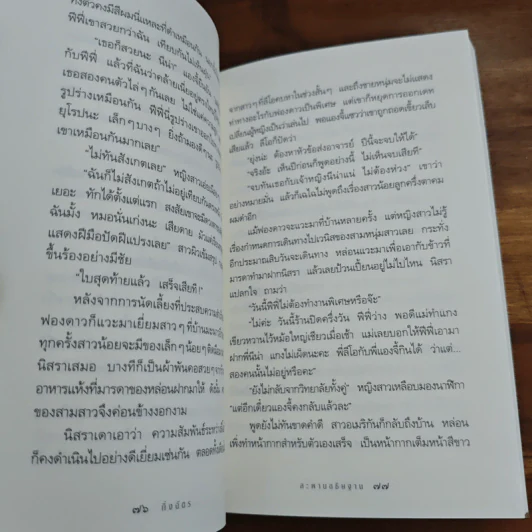 ทั้งตัวคงมีสีผมนี่แหละที่ดำเหมือนกัน
พีพี่เขาสวยกว่าฉัน เทียบกันไม่
"เธอก็สวยนะ นีน่า"
กับพีพี่ แล้วที่ฉันว่าคล้าย
เธอสองคนตัวไล่ๆ กันเลย ไม่ใช่
รูปร่างเหมือนกัน พีพี่มีรูปร่าง
ยุโรปนะ เล็กๆ บางๆ ยิ่งถ้ามอง
เขาเหมือนกันมากเลย"
"ไม่ทันสังเกตเลย" หญิงสาว
"ฉันก็ไม่สังเกตถ้าไม่อยู่เทียบกัน
เยอะ ทักได้ตั้งแต่แรก สงสัยเขาจะ
ฉันมั้ง หมอนั่นเก่งนะ เสียดาย
แสดงฝีมือปัดฝีแปรงเลย" สาว
ขึ้นร้องอย่างมีชัย
"ใบสุดท้ายแล้ว เสร็จเสียที!"
หลังจากการนัดเลี้ยงที่ประสบความ
ฟองดาวก็แวะมาเยี่ยมสาวๆ ที่บ้าน
ทุกครั้งสาวน้อยจะมีของเล็กๆ น้อยๆ
นิสราเสมอ บางทีก็เป็นผ้าพันคอสวยๆ
อาหารแห้งที่มารดาของหล่อนฝากมาให้
ของสามสาวจึงค่อนข้างงอกงาม
นิสราเดาเอาว่า ความสัมพันธ์ระหว่าง
ก็คงดำเนินไปอย่างดีเยี่ยมเช่นกัน ตลอด
๗๖ กิ่งฉัตร
จากสาวๆ ที่ลีโอคบหาในช่วงสั้นๆ และถึงชายหนุ่มจะไม่แสดง
ท่าทางอะไรกับฟองดาวเป็นพิเศษ แต่เขาก็หยุดการออกเดท
เปลี่ยนผู้หญิงเป็นว่าเล่นไป พอแองจี้แซวว่าเขาถูกถอดเขี้ยวเล็บ
เสียแล้ว ลีโอก็ปัดว่า
"ยุ่งน่ะ ต้องหาหัวข้อส่งอาจารย์ ปีนี้จะจบให้ได้"
"จริงอ้ะ เห็นปีก่อนก็พูดอย่างนี้ ไม่เห็นจบเสียที"
"จบทันเธอกับเจ้าหญิงนีน่าแน่ ไม่ต้องห่วง" เขาว่า
อย่างหมายมั่น แล้วก็เฉไฉไม่พูดถึงเรื่องสาวน้อยลูกครึ่งตาคม
ผมดำอีก
แม้ฟองดาวจะแวะมาที่บ้านหลายครั้ง แต่หญิงสาวไม่รู้
เรื่องกำหนดการเดินทางไปเวนิสของสามหนุ่มสาวเลย กระทั่ง
อีกประมาณเสิบวันจะเดินทาง หล่อนแวะมาเพื่อเอากับข้าวที่
มารดาทำมาฝากนิสรา แล้วเลยป้วนเปี้ยนอยู่ไม่ไปไหน นิสรา
แปลกใจ ถามว่า
"วันนี้พีพี่ไม่ต้องทำงานพิเศษหรือจ๊ะ"
"ไม่ค่ะ วันนี้ร้านปิดครึ่งวัน พีพี่ว่าง พอดีแม่ทำแกง
เขียวหวานไว้หม้อใหญ่เชียวเมื่อเช้า แม่เลยบอกให้พีพี่เอามา
ฝากพี่นีน่า แกงไม่เผ็ดนะคะ พี่ลีโอกับพี่แองจี้กินได้ ว่าแต่...
สองคนนั้นไม่อยู่หรือคะ"
"ยังไม่กลับจากวิทยาลัยทั้งคู่" หญิงสาวเหลือบมองนาฬิกา
"แต่อีกเดี๋ยวแองจี้คงกลับแล้วละ"
พูดยังไม่ทันขาดคำดี สาวอเมริกันก็กลับถึงบ้าน หล่อน
เพิ่งทำหน้ากากสำหรับตัวเองเสร็จ เป็นหน้ากากเต็มหน้าสีขาว
ละตานอธิษฐาน ๗๗